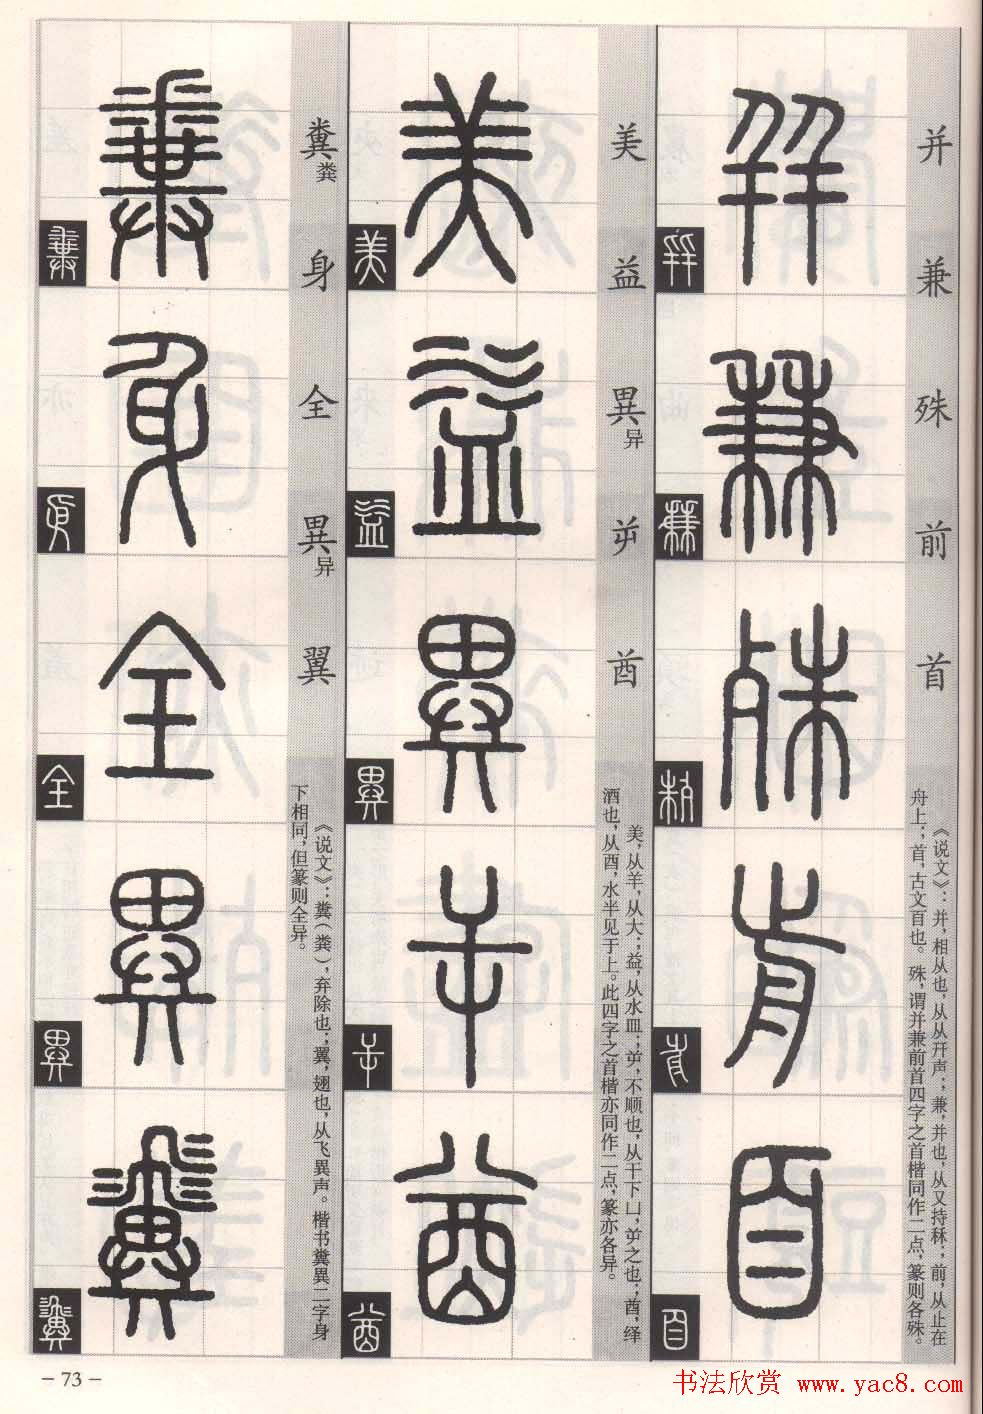 并兼殊前首
《说文》：并，相从也，从从幵声；兼，并也，从又持秝；前，从止在
舟上；首，古文百也。殊，谓并兼前首四字之首楷同作二点，篆则各殊。
美益異异屰酋
美，从羊，从大；益，从水皿；屰，不顺也，从干下凵，屰之也；酋，绎
酒也，从酉，水半见于上。此四字之首楷亦同作二点，篆亦各异。
糞粪身全異异翼
《说文》：糞（粪），弃除也；翼，翅也，从飞異声。楷书糞異二字身
下相同，但篆则全异。
- 73 -
书法欣赏 www.yac8.com